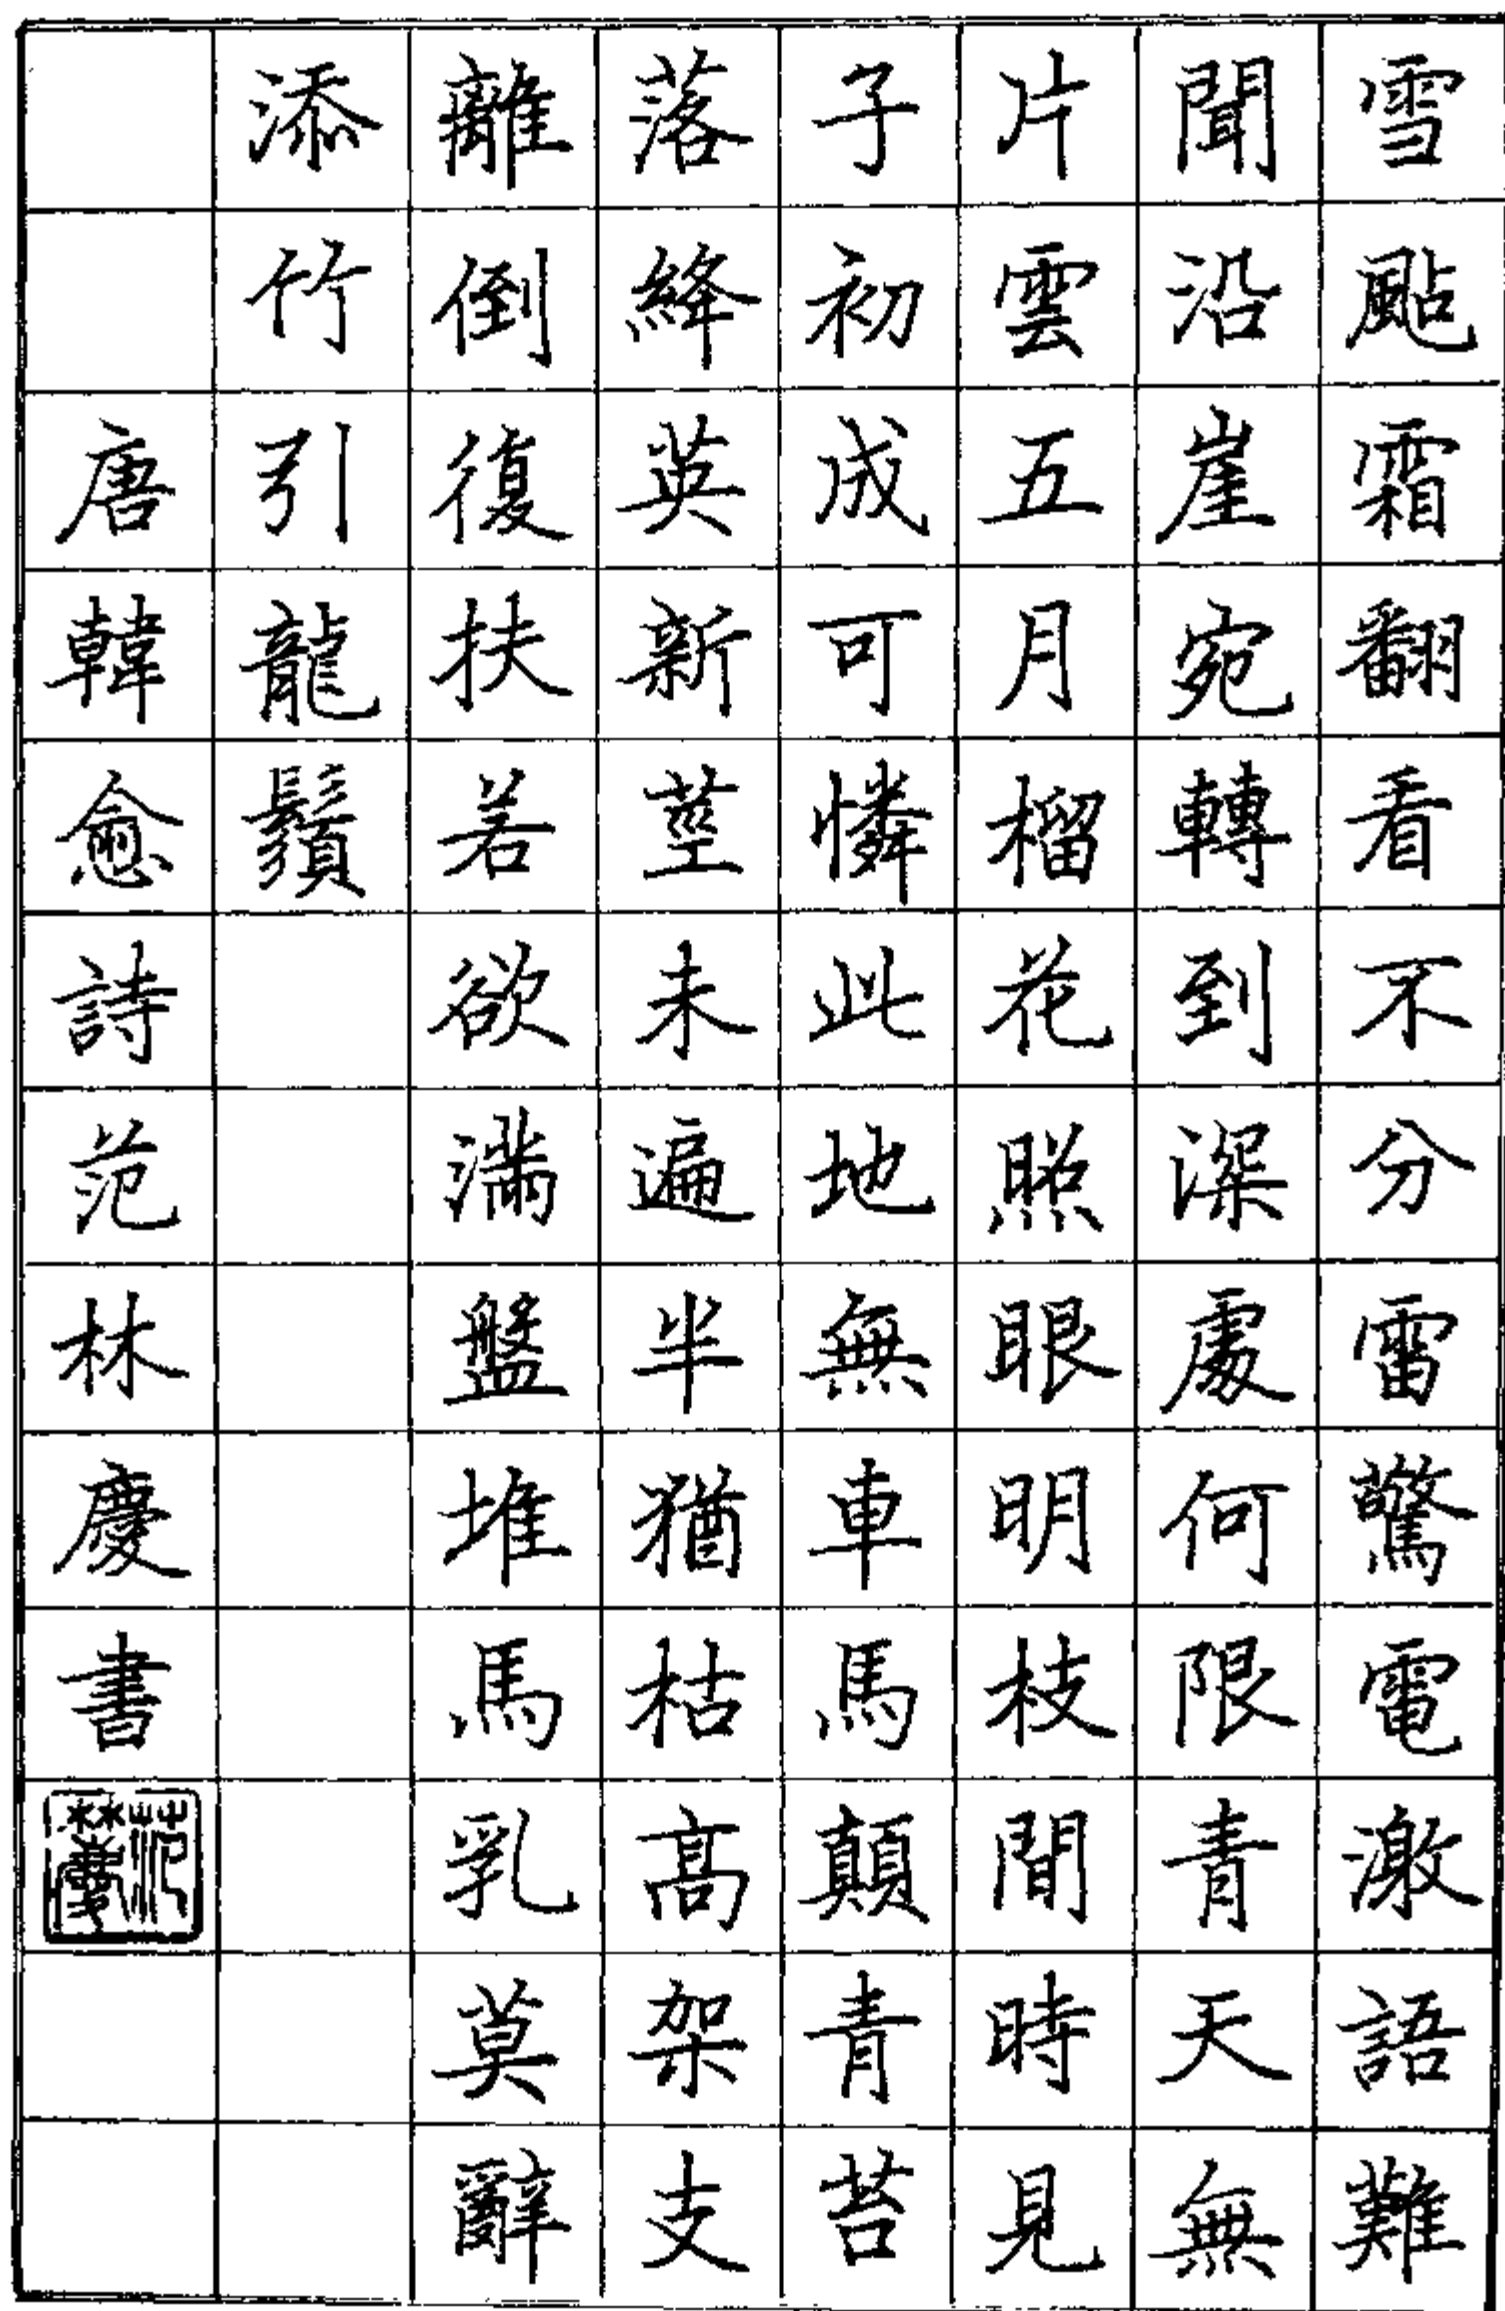 雪颭霜翻看不分雷驚電激語難
聞沿崖宛轉到深處何限青天無
片雲五月榴花照眼明枝間時見
子初成可憐此地無車馬顛青苔
落絳英新莖未遍半猶枯高架支
離倒復扶若欲滿盤堆馬乳莫辭
添竹引龍鬚
唐韓愈詩范林慶書
范林慶